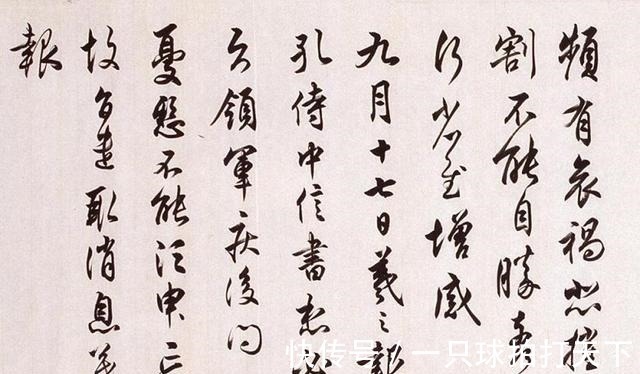 頻有哀禍悲摧
割不能自勝奈
何省慰增感
九月十七日羲之報
孔侍中信書想
知領軍疾後問
憂懸不能須臾忘
故旨遣取消息羲
報
快传号/一只球拍打天下